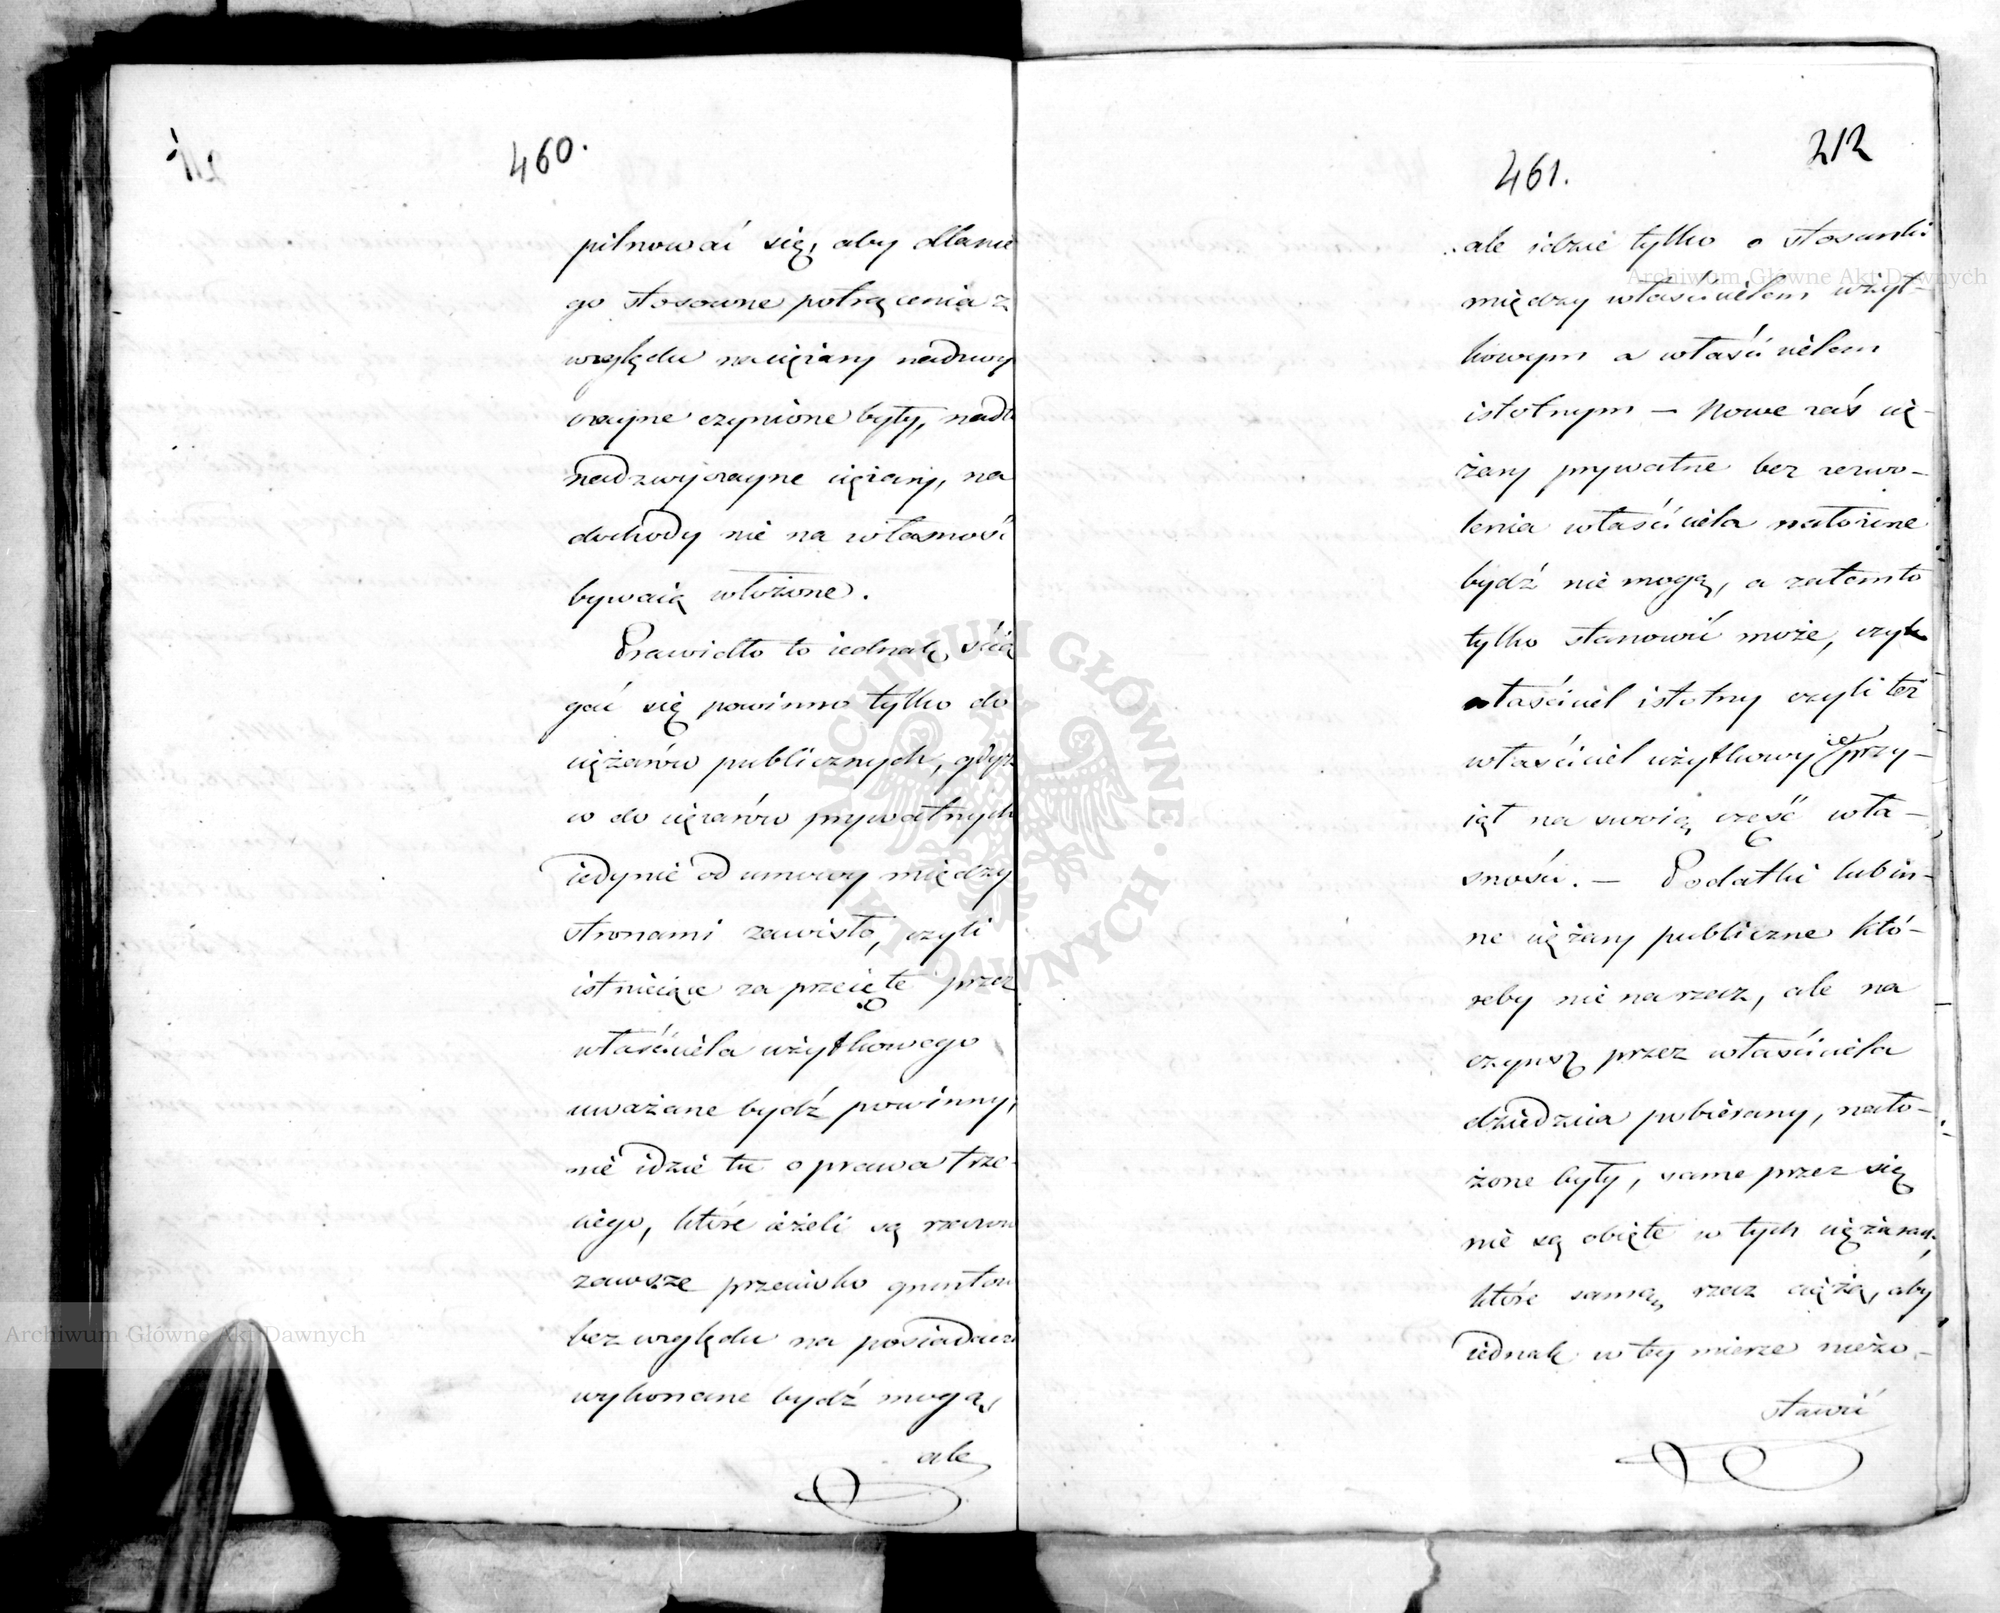 460.
pilnować się, aby dlanie
go stosowne potrącenia z
względu na ciężary nadzwy
czayne czynione były, nadto
nadzwyczayne ciężary, na
dochody nie na własność
bywaią włożone.
Prawidło to iednak ścią
gać się powinno tylko do
ciężarów publicznych, gdyż
w do ciężarów prywatnych
iedynie od umowy między
stronami zawisło, czyli
istnieiące za przeięte przez
właściciela użytkowego
uważane bydź powinny,
nie idzie tu o prawa trze-
ciego, które ieżeli są rzeczow
zawsze przeciwko gruntow
bez względu na posiadacza
wykonane bydź mogą,
ale
212
461.
ale idzie tylko o stosunki
między właścicielem użyt-
kowym a właścicielem
istotnym — Nowe zaś cię-
żary prywatne bez zezwo-
lenia właściciela nałożone
bydź nie mogą, a zatem to
tylko stanowić może, czyli
właściciel istotny czyli też
właściciel użytkowy ie przy-
iął na swoią część wła-
sności. — Podatki lub in-
ne ciężary publiczne któ-
reby nie na rzecz, ale na
czynsz przez właściciela
dziedzica pobierany, nało-
żone były, same przez się
nie są obięte w tych ciężarach,
które samą rzecz ciążą, aby
iednak w tey mierze niezo-
stawić
Archiwum Główne Akt Dawnych
Archiwum Główne Akt Dawnych
ARCHIWUM GŁÓWNE AKT DAWNYCH